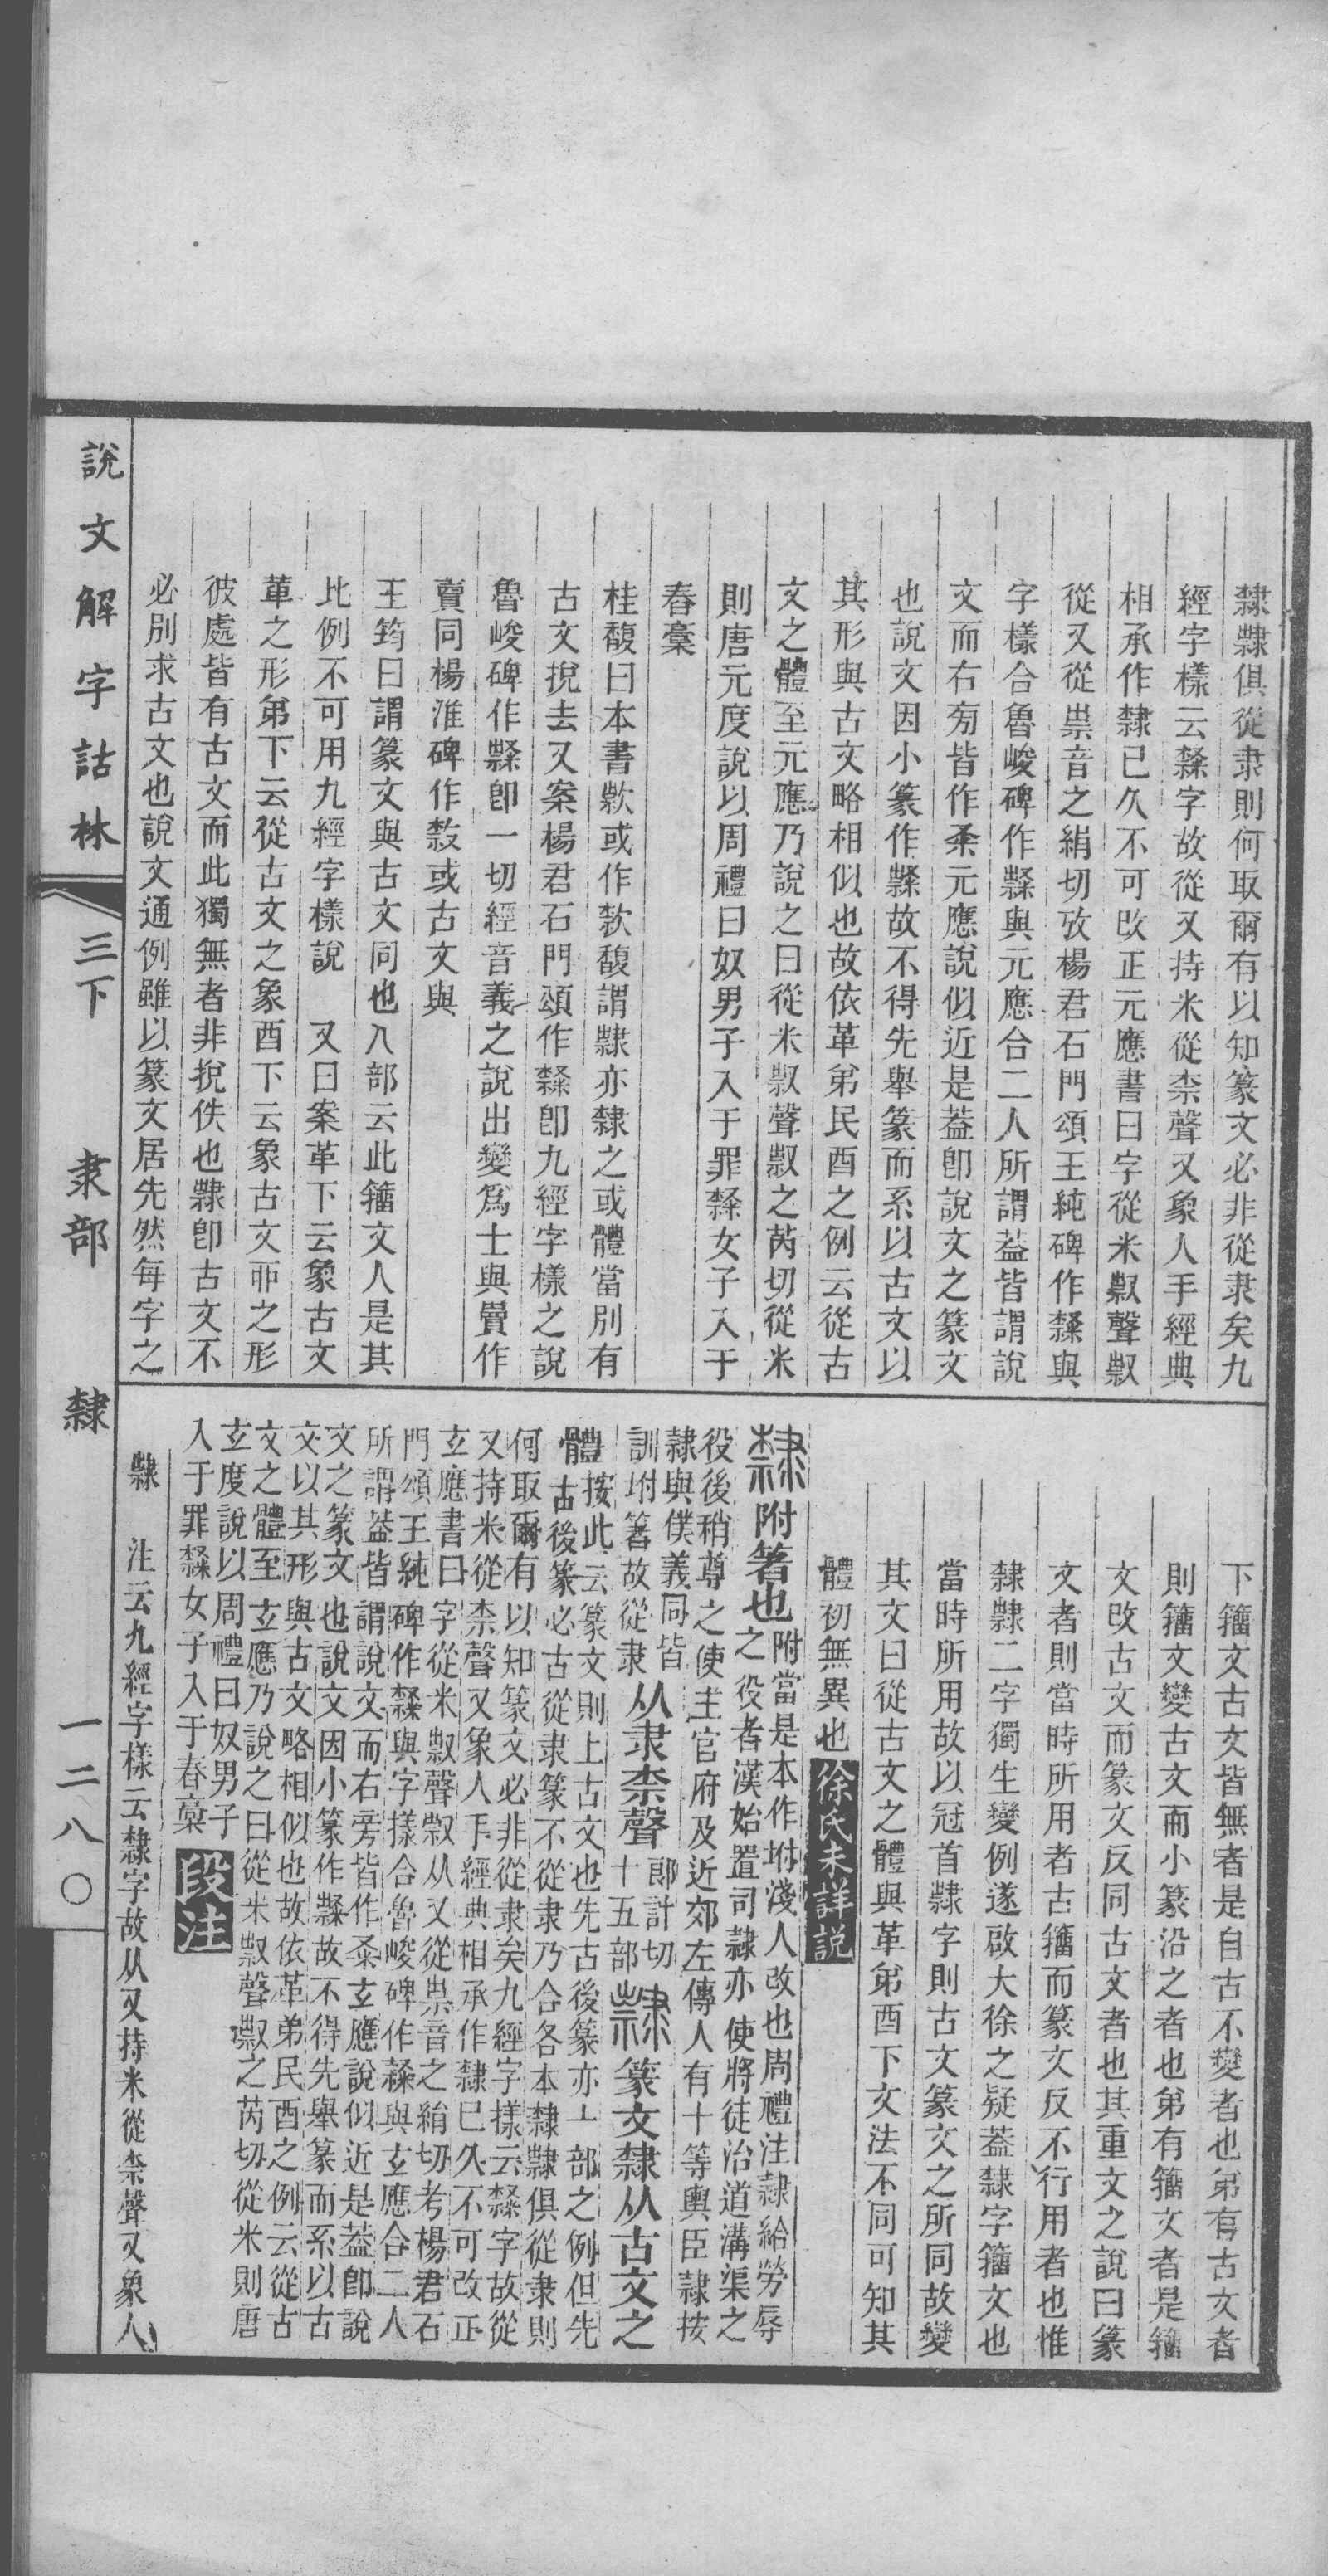 隸隷俱從隶則何取爾有以知篆文必非從隶矣九
經字樣云𥽿字故從又持米從柰聲又象人手經典
相承作隸已久不可改正元應書曰字從米㱁聲㱁
從又從祟音之絹切攷楊君石門頌王純碑作𥽿與
字樣合魯峻碑作𥽿與元應合二人所謂葢皆謂說
文而右㫄皆作柔元應說似近是葢卽說文之篆文
也說文因小篆作𥽿故不得先舉篆而系以古文以
其形與古文略相似也故依革弟民酉之例云從古
文之體至元應乃說之曰從米㱁聲㱁之芮切從米
則唐元度說以周禮曰奴男子入于罪𥽿女子入于
舂槀
桂馥曰本書㱁或作欵馥謂隷亦隸之或體當別有
古文挩去又案楊君石門頌作𥽿卽九經字樣之說
魯峻碑作𥽿卽一切經音義之說出變爲士與賣作
賣同楊淮碑作㱁或古文與
王筠曰謂篆文與古文同也八部云此籒文人是其
比例不可用九經字樣說 又曰案革下云象古文
革之形弟下云從古文之象酉下云象古文丣之形
彼處皆有古文而此獨無者非挩佚也隷卽古文不
必別求古文也說文通例雖以篆文居先然每字之
下籒文古文皆無者是自古不變者也弟有古文者
則籒文變古文而小篆沿之者也弟有籒文者是籒
文改古文而篆文反同古文者也其重文之說曰篆
文者則當時所用者古籒而篆文反不行用者也惟
隸隷二字獨生變例遂啟大徐之疑葢隸字籒文也
當時所用故以冠首隷字則古文篆文之所同故變
其文曰從古文之體與革弟酉下文法不同可知其
體初無異也徐氏未詳說
隸附箸也附當是本作坿淺人改也周禮注隸給勞辱
之役者漢始置司隸亦使將徒治道溝渠之
役後稍尊之使主官府及近郊左傳人有十等輿臣隸按
隸與僕義同皆
訓坿箸故從隶从隶柰聲郞計切
十五部隷篆文隸从古文之
體按此云篆文則上古文也先古後篆亦丄部之例但先
古後篆必古從隶篆不從隶乃合各本隸隷俱從隶則
何取爾有以知篆文必非從隶矣九經字㨾云𥽿字故從
又持米從柰聲又象人手經典相承作隸已久不可改正
玄應書曰字從米㱁聲㱁从又從祟音之絹切考楊君石
門頌王純碑作𥽿與字㨾合魯峻碑作𥽿與玄應合二人
所謂葢皆謂說文而右旁皆作柔玄應說似近是葢卽說
文之篆文也說文因小篆作𥽿故不得先舉篆而系以古
文以其形與古文略相似也故依革弟民酉之例云從古
文之體至玄應乃說之曰從米㱁聲㱁之芮切從米則唐
玄度說以周禮曰奴男子
入于罪𥽿女子入于舂槀段注
隷 注云九經字樣云隸字故从又持米從柰聲又象人
說文解字詁林 三下 隶部 隸 一二八〇